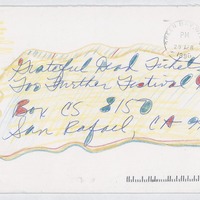 PM
Grateful Dead Tickets
Too Further Festival
Box CS 2150
San Rafael, CA 9